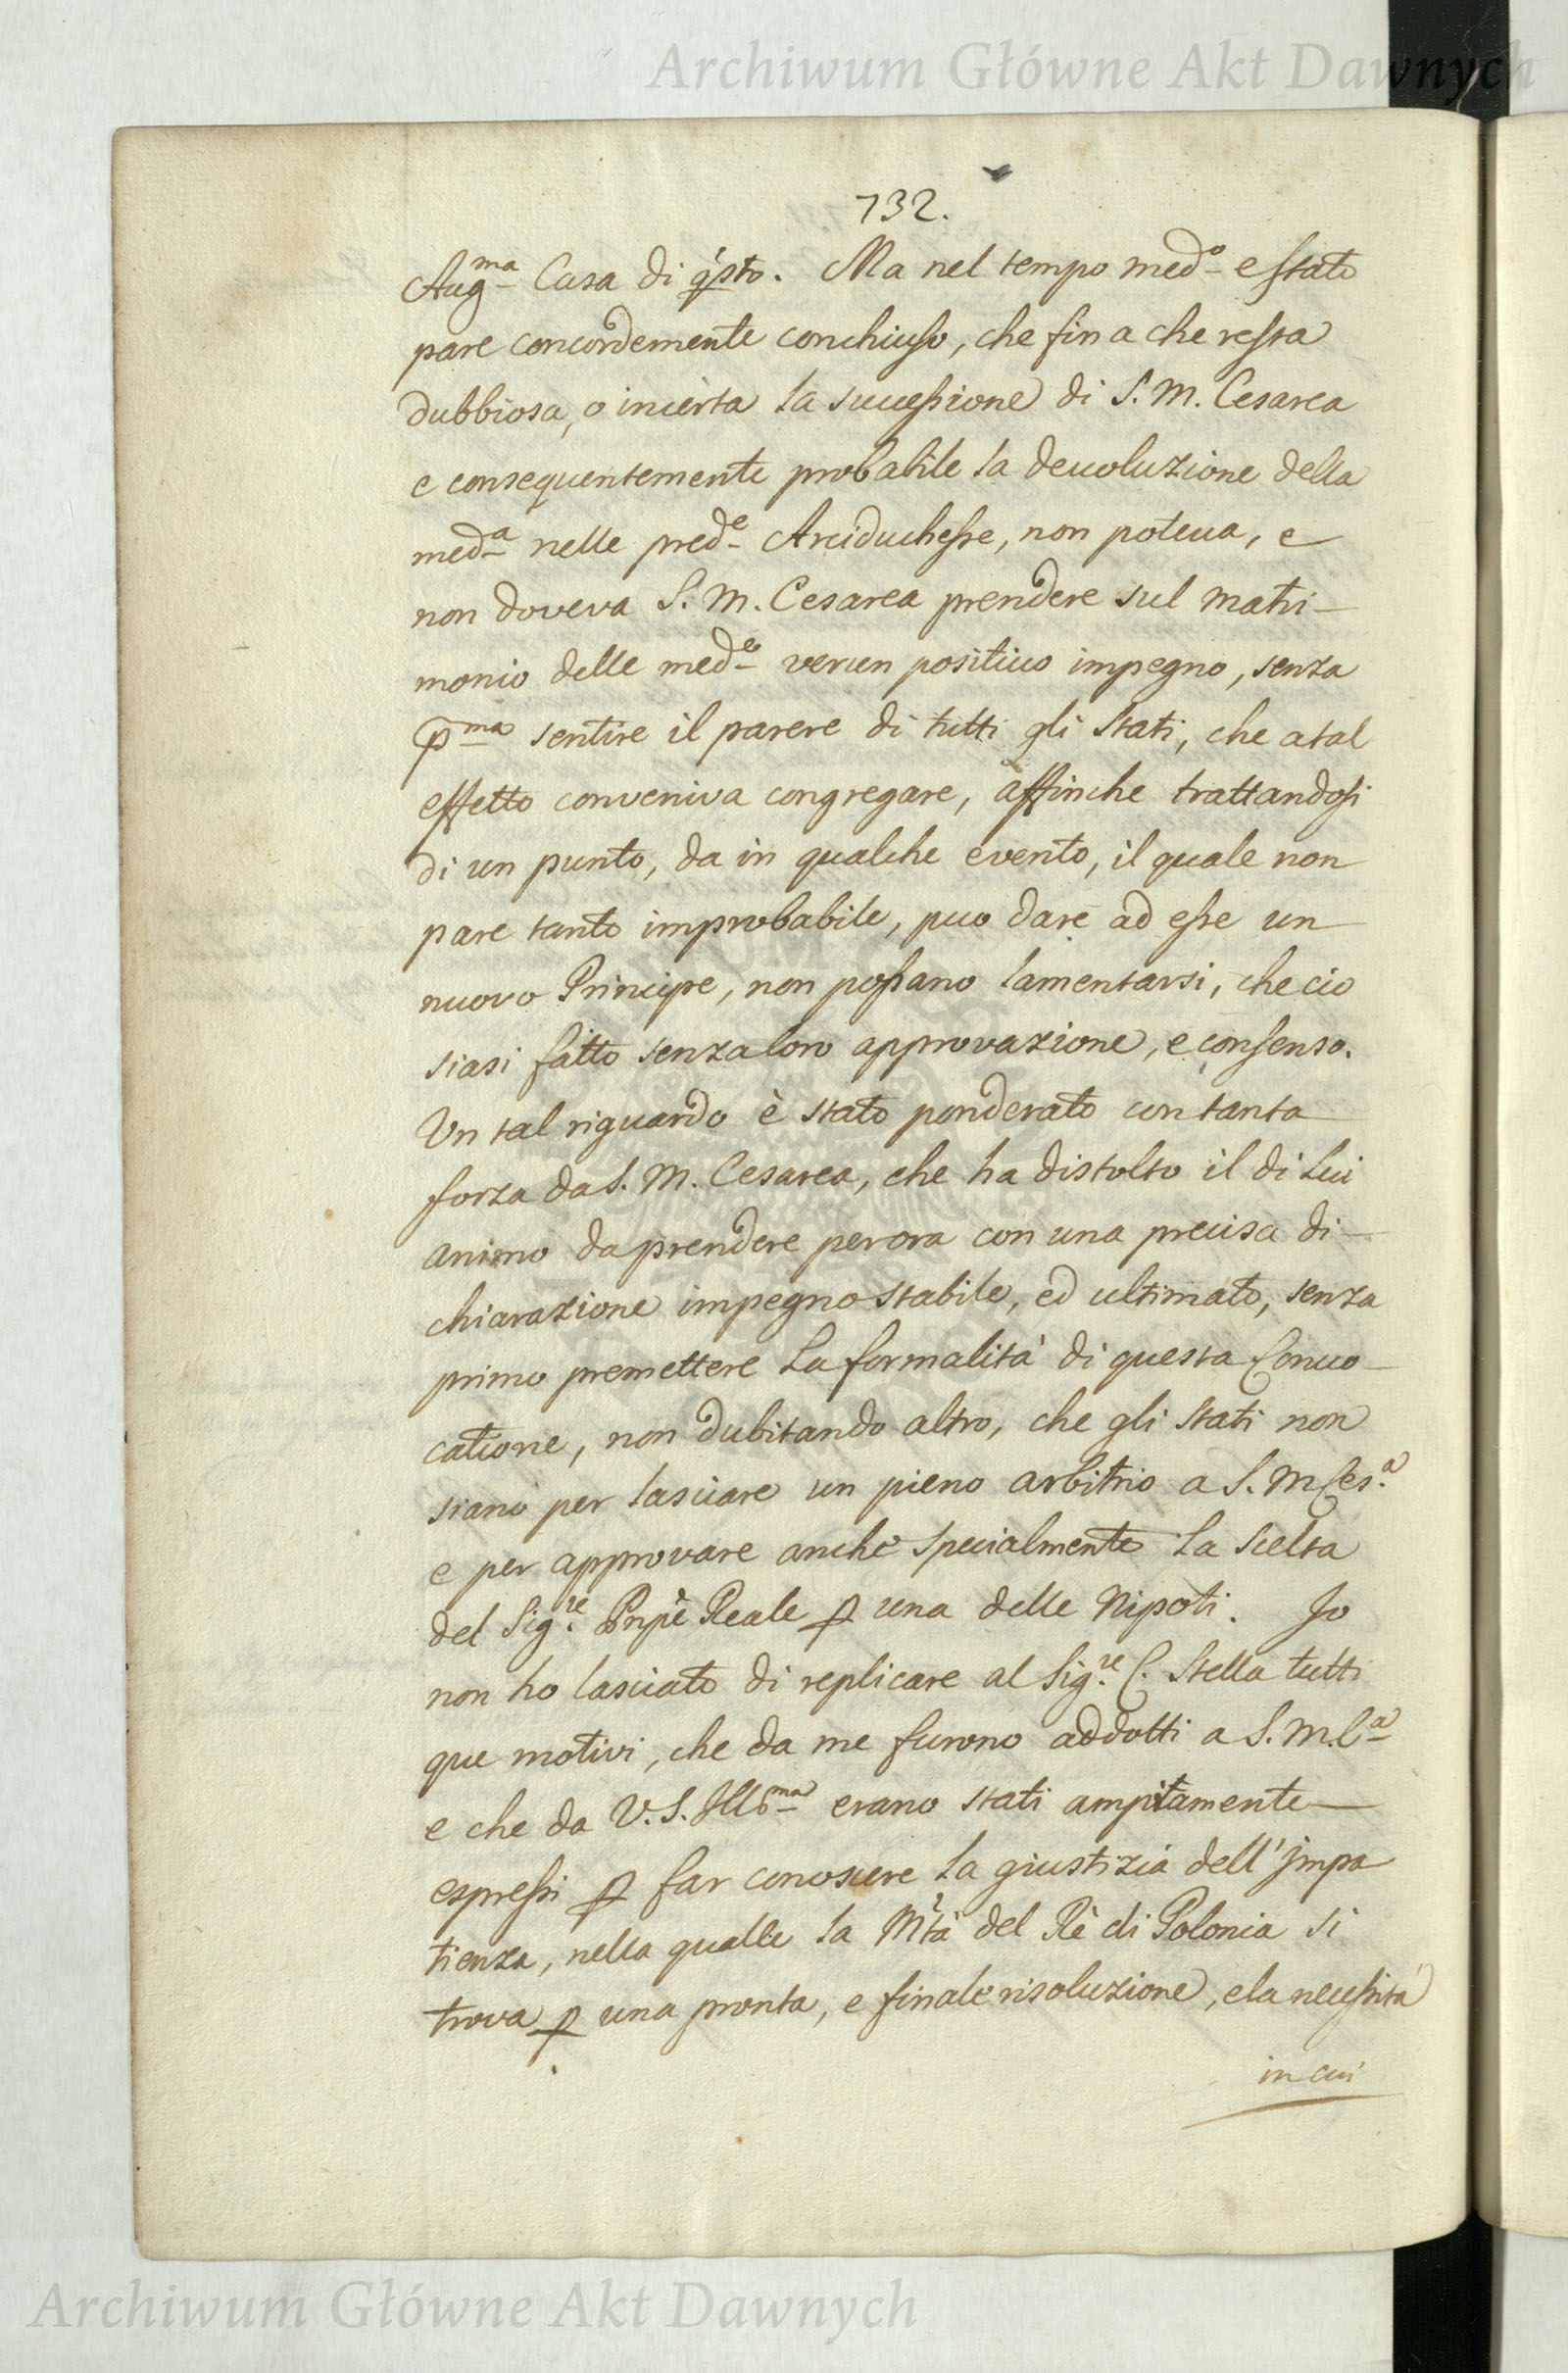 Archiwum Główne Akt Dawnych
732.
Augma Casa di qsto. Ma nel tempo medo e stato
pare concordemente conchiuso, che fin a che resta
dubbiosa, o incerta la successione di S. M. Cesarea
e consequentemente probabile la devoluzione della
meda nelle prede Arciduchesse, non poteva, e
non doveva S. M. Cesarea prendere sul matri-
monio delle mede verun positivo impegno, senza
pma sentire il parere di tutti gli Stati, che a tal
effetto conveniva congregare, affinche trattandosi
di un punto, da in qualche evento, il quale non
pare tanto improbabile, puo dare ad esse un
nuovo Principe, non possano lamentarsi, che cio
siasi fatto senza loro approvazione, e consenso.
Un tal riguardo è stato ponderato con tanta
forza da S. M. Cesarea, che ha distolto il di Lui
animo da prendere per ora con una precisa di-
chiarazione impegno stabile, ed ultimato, senza
primo premettere La formalità di questa Convo-
catione, non dubitando altro, che gli Stati non
siano per lasciare un pieno arbitrio a S. M Ces.a
e per approvare anche specialmente La Scelta
del Sig.re Pnpe Reale p una delle Nipoti. Io
non ho lasciato di replicare al Sig.re C. Stella tutti
que motivi, che da me furono addotti a S. M. Ca
e che da V. S. Illma erano stati ampitamente
espressi p far conoscere la giustizia dell'impa
tienza, nella qualle la Mtà del Rè di Polonia si
trova p una pronta, e finale risoluzione, e la necessità
in cui
Archiwum Główne Akt Dawnych